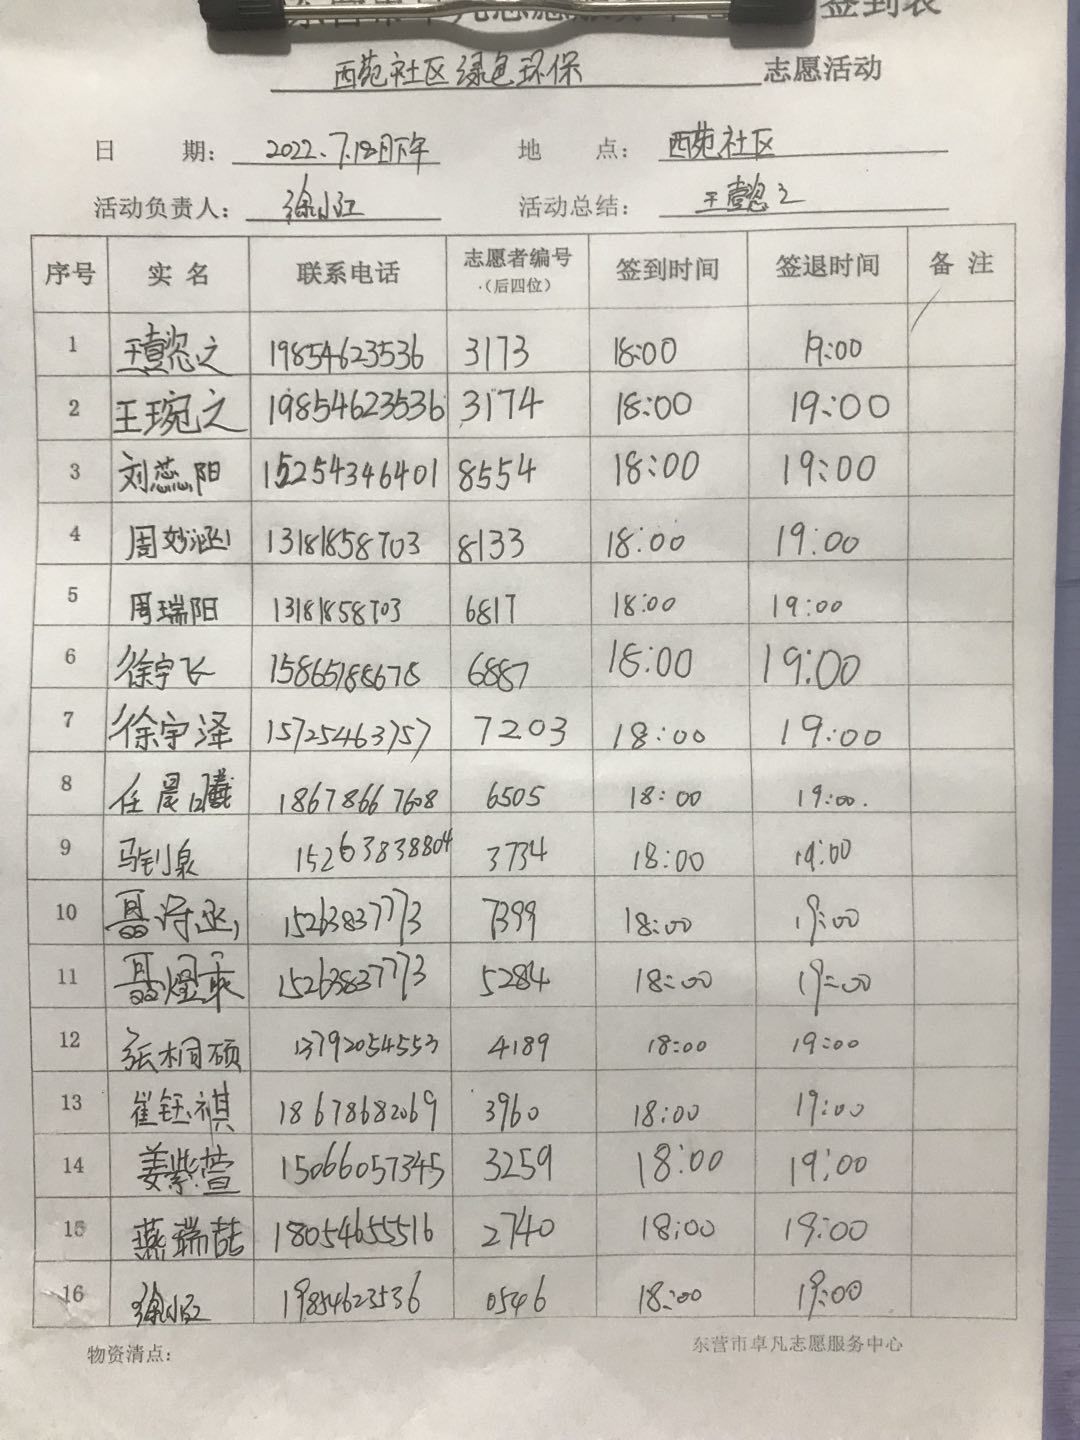 签到表
西苑社区绿色环保 志愿活动
日 期: 2022.7.18日下午 地 点: 西苑社区
活动负责人: 徐小江 活动总结: 王懿之
序号 实 名 联系电话 志愿者编号 (后四位) 签到时间 签退时间 备 注
1 王懿之 19854623536 3173 18:00 19:00
2 王琬之 19854623536 3174 18:00 19:00
3 刘蕊阳 15254346401 8554 18:00 19:00
4 周妙涵 13181858703 8133 18:00 19:00
5 周瑞阳 13181858703 6817 18:00 19:00
6 徐宇飞 15865188678 6887 18:00 19:00
7 徐宇泽 15725463757 7203 18:00 19:00
8 任晨曦 18678667608 6505 18:00 19:00.
9 马钊泉 15263838804 3734 18:00 19:00
10 聂 15263837773 7399 18:00 19:00
11 聂煜乘 15263837773 5284 18:00 19:00
12 张桐硕 13792054553 4189 18:00 19:00
13 崔钰祺 18678682069 3960 18:00 19:00
14 姜紫萱 15066057345 3259 18:00 19:00
15 燕瑞喆 18054655516 2740 18:00 19:00
16 徐小江 19854623536 0546 18:00 19:00
物资清点: 东营市卓凡志愿服务中心